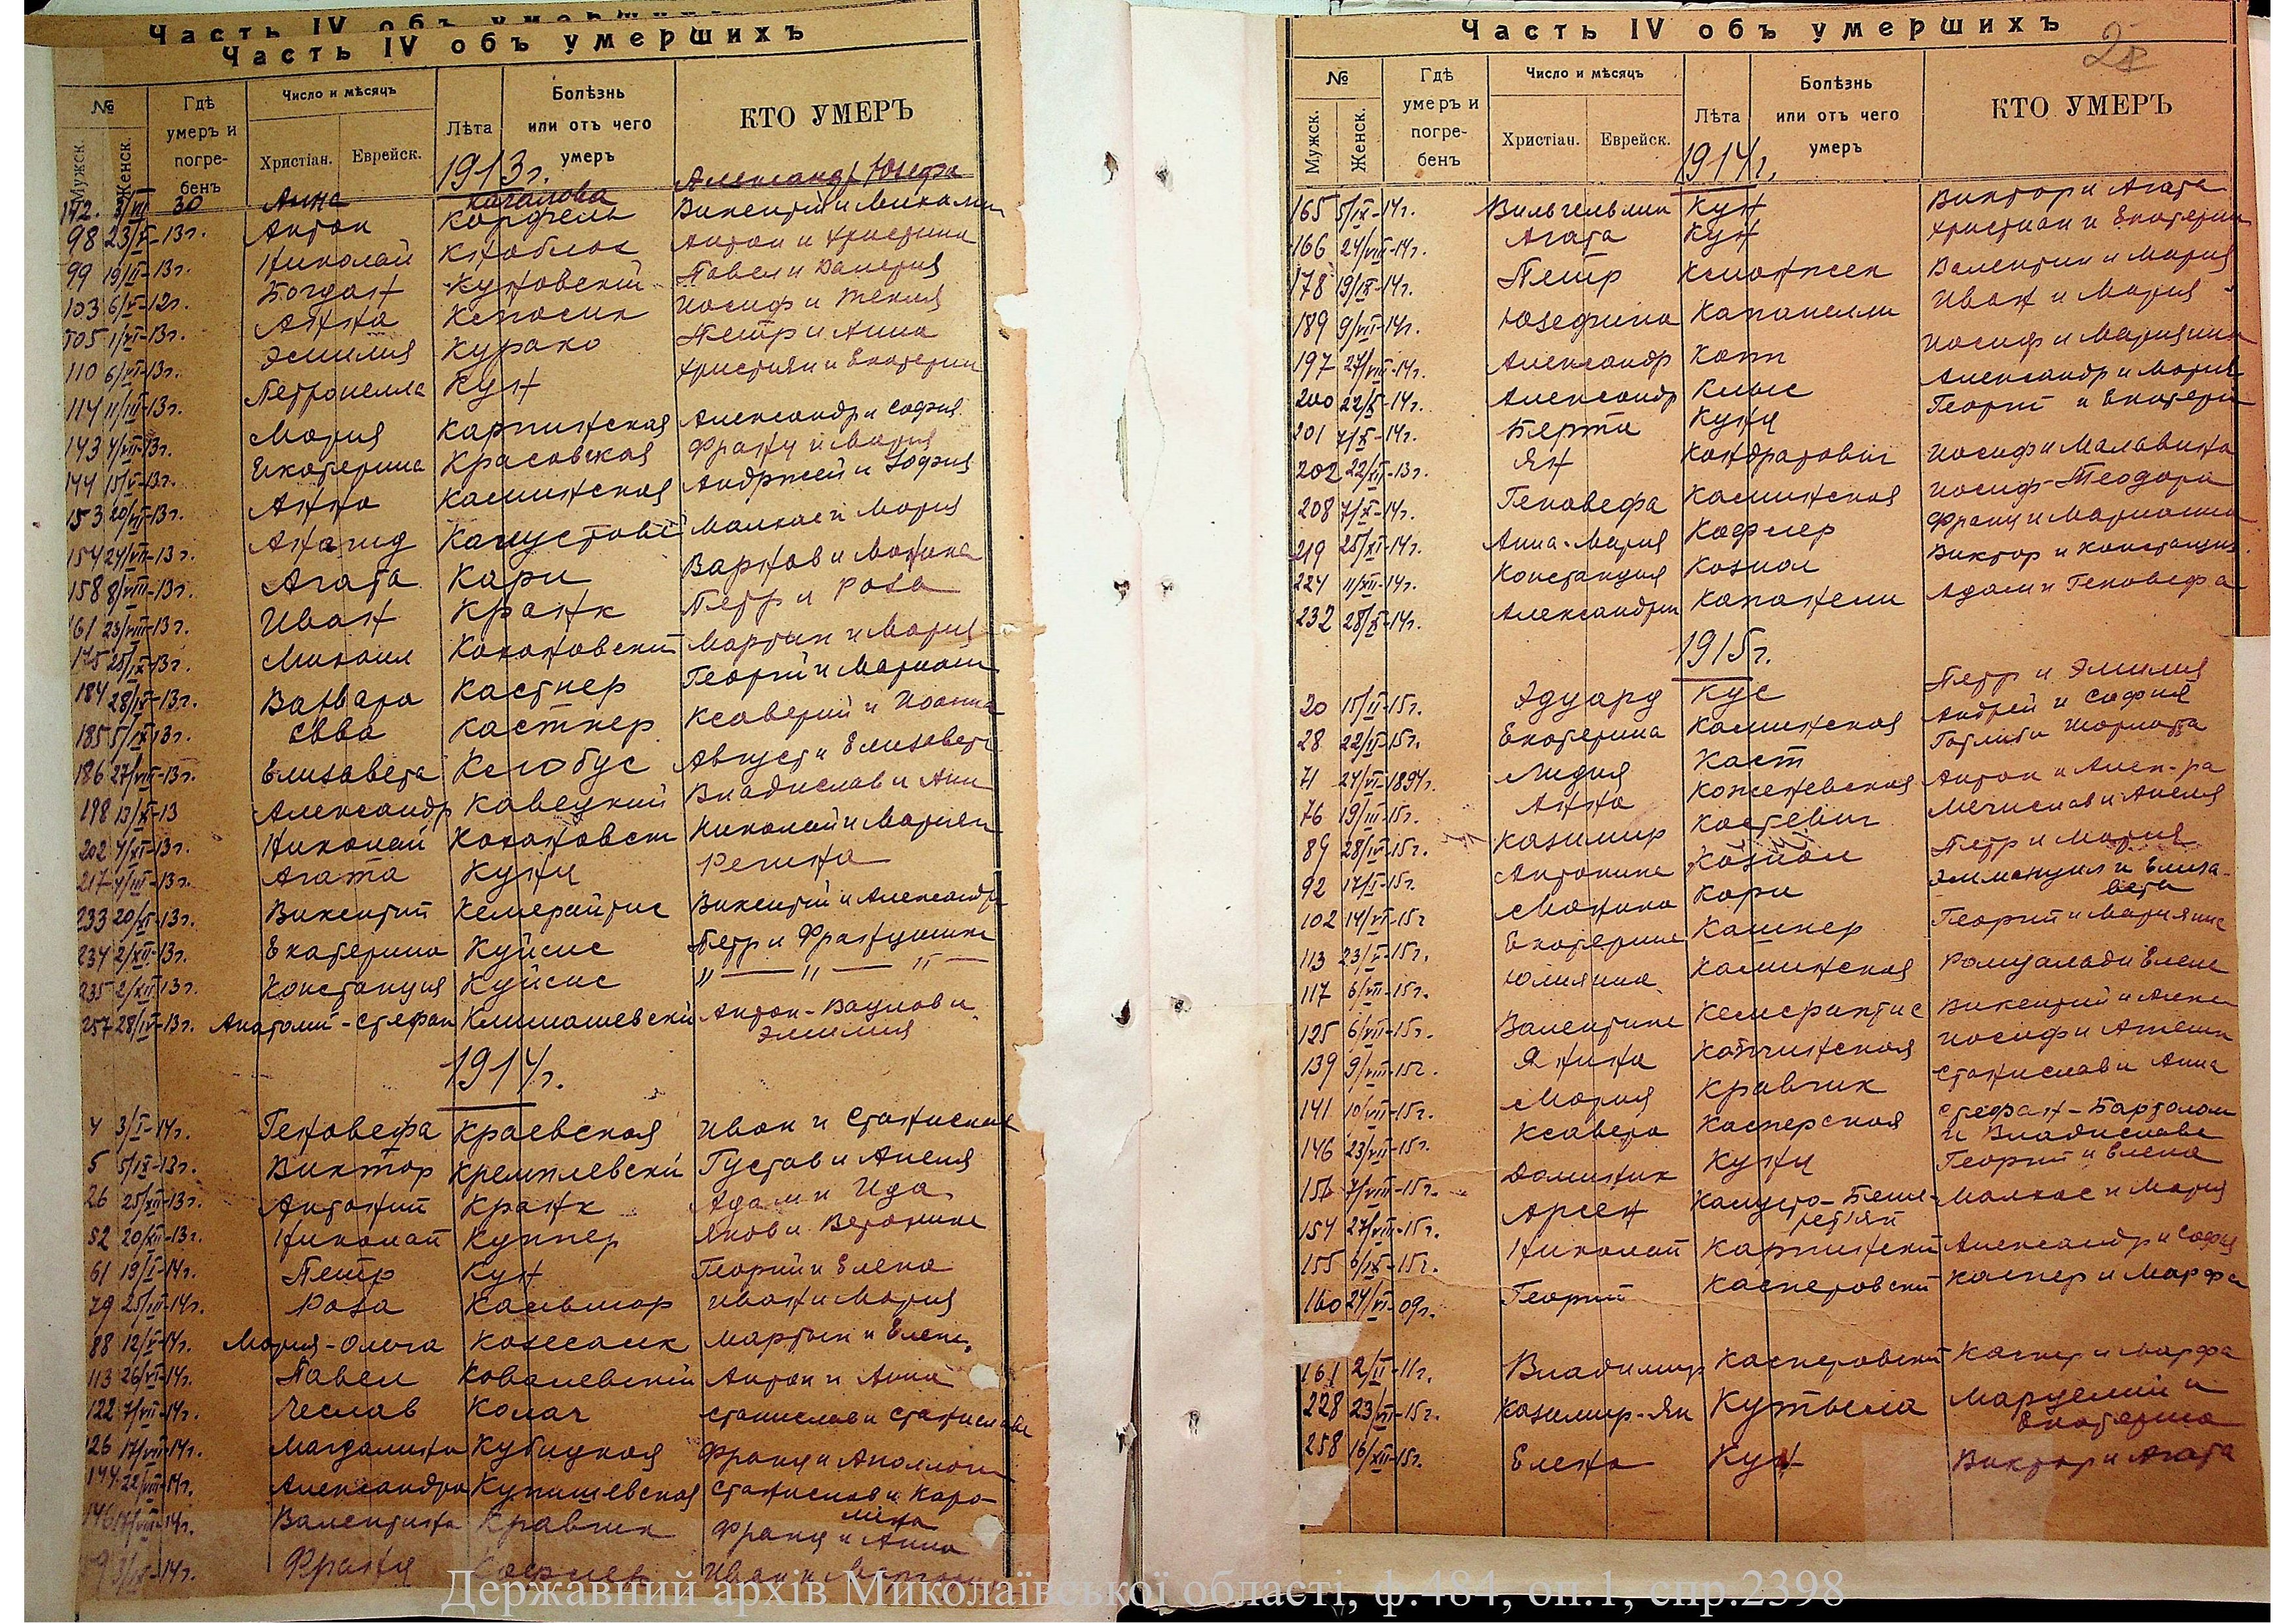 Часть IV объ умершихъ
Часть IV объ умершихъ
№
Мужск.
Женск.
Гдѣ умеръ и погребенъ
Число и мѣсяцъ
Христіан.
Еврейск.
Лѣта
Болѣзнь или отъ чего умеръ
КТО УМЕРЪ
1913г.
Анна Александр Юзефа
98 23/ -13г. Антон Корфель Викентий и
99 19/ -13г. Николай Кноблох Антон и Христина
103 6/ -12г. Богдан Куновский Павел и Валерия
105 1/VI-13г. Анна Иосиф и Текля
110 6/VI-13г. Эмилия Курако Петр и Анна
114 11/III-13г. Петронелла Кун Христиан и Екатерин
143 4/VII-13г. Мария Карпинская Александр и София
144 15/ -13г. Екатерина Красовская Франц и Мария
153 20/ -13г. Анна Каминская Анджей и Зофия
154 24/VII-13г. Капустов Малхас и Мария
158 8/VIII-13г. Агата Кари Варнов и Моника
161 23/VIII-13г. Иван Кранк Петр и Роза
175 25/IX-13г. Михаил Кохановский Мартын и Мария
184 28/IX-13г. Варвара Кастнер Георгий и Мариан
185 5/IX-13г. Евва Кастнер Ксаверий и Иоанна
186 27/VIII-13г. Елизавета Клобус Август и Елизавет
198 13/X-13 Александр Кавецкий Владислав и Анн
202 4/XI-13г. Николай Кохановск Николай и Мариан
217 4/ -13г. Агата Кунц Регина
233 20/XI-13г. Викентий Кемерайтис Викентий и Александра
234 2/XII-13г. Екатерина Куйсис Петр и Францишка
235 2/XII-13г. Констанция Куйсис " — " — " —
257 28/IV-13г. Анатолий-Стефан Климашевский Антон-Вацлав и
Эмилия
1914г.
4 3/I-14г. Геновефа Краевская Иван и Станислав
5 5/IX-13г. Виктор Кремплевский Густав и Анеля
26 25/XII-13г. Антоний Кранк Адам и Ида
52 20/XII-13г. Николай Куппер Яков и Веронике
61 19/I-14г. Петр Кун Георгий и Елена
79 25/III-14г. Роза Касьвигор Иван и Мария
88 12/V-14г. Мария-Ольга Мартын и Елена
113 26/VI-14г. Павел Ковалевский Антон и Анна
122 7/VII-14г. Чеслав Колач Станислав и Станислава
126 17/VII-14г. Магдалина Кубицкая Франц и Аполлон
144 22/VIII-14г. Александра Купишевская Станислав и Каро-
лина
146 17/VIII-14г. Валентина Кравчик Франц и Анна
3/ -14г. Франц Кафлер Иван и
Часть IV объ умершихъ
№
Мужск.
Женск.
Гдѣ умеръ и погребенъ
Число и мѣсяцъ
Христіан.
Еврейск.
Лѣта
Болѣзнь или отъ чего умеръ
КТО УМЕРЪ
1914г.
165 5/IX-14г. Вильгельмин Кун Виктор и Агата
166 24/VIII-14г. Агата Кун Христиан и Екатерин
178 19/IX-14г. Петр Валентин и Мария
189 9/VII-14г. Юзефина Капанелли Иван и Мария
197 27/VIII-14г. Александр Копп Иосиф и Марианна
200 22/X-14г. Александр Клыс Александр и Мария
201 7/X-14г. Берта Кунц Георгий и Екатерин
202 22/XII-13г. Ян Кондратович Иосиф и Мальвина
208 7/XI-14г. Геновефа Каминская Иосиф-Теодора
219 25/XI-14г. Анна-Мария Кафлер Франц и Марианна
224 11/XII-14г. Констанция Козиол Виктор и Констанция
232 28/X-14г. Александрин Капанели Адам и Геновефа
1915г.
20 15/II-15г. Эдуард Кус Петр и Эмилия
28 22/II-15г. Екатерина Каминская Андрей и София
71 24/VI-1894г. Лидия Каст Готлиб и Шарлота
76 19/III-15г. Анна Кожневская Антон и Алек-ра
89 28/IV-15г. Казимир Костевич Мечислав и Анеля
92 17/I-15г. Антонина Козиол Петр и Мария
102 14/VI-15г. Монина Кари Эммануил и Елиза-
вета
113 23/V-15г. Екатерина Кашнер Георгий и Марианне
117 6/VII-15г. Юлиянна Каминская Ромуальд и Елене
125 6/VII-15г. Валентине Кемерайтис Викентий и Алек
139 9/VIII-15г. Янина Копчинская Иосиф и Агнешк
141 10/VII-15г. Мария Кравчик Станислав и Анна
146 23/VII-15г. Ксавера Касперская Стефан-Бартолом
и Владислава
151 7/VIII-15г. Доминик Кунц Георгий и Елена
154 27/VIII-15г. Арсен Капусто- Малхас и Мария
155 6/IX-15г. Николай Карпинский Александр и София
160 24/VI-09г. Георгий Касперовский Каспер и Марфа
161 2/II-11г. Владимир Касперовский Каспер и Марфа
228 23/VI-15г. Казимир-Ян Кутыла Марцелий и
Екатерина
258 16/XII-15г. Елена Кун Виктор и Агата
Державний архів Миколаївської області, ф.484, оп.1, спр.2398